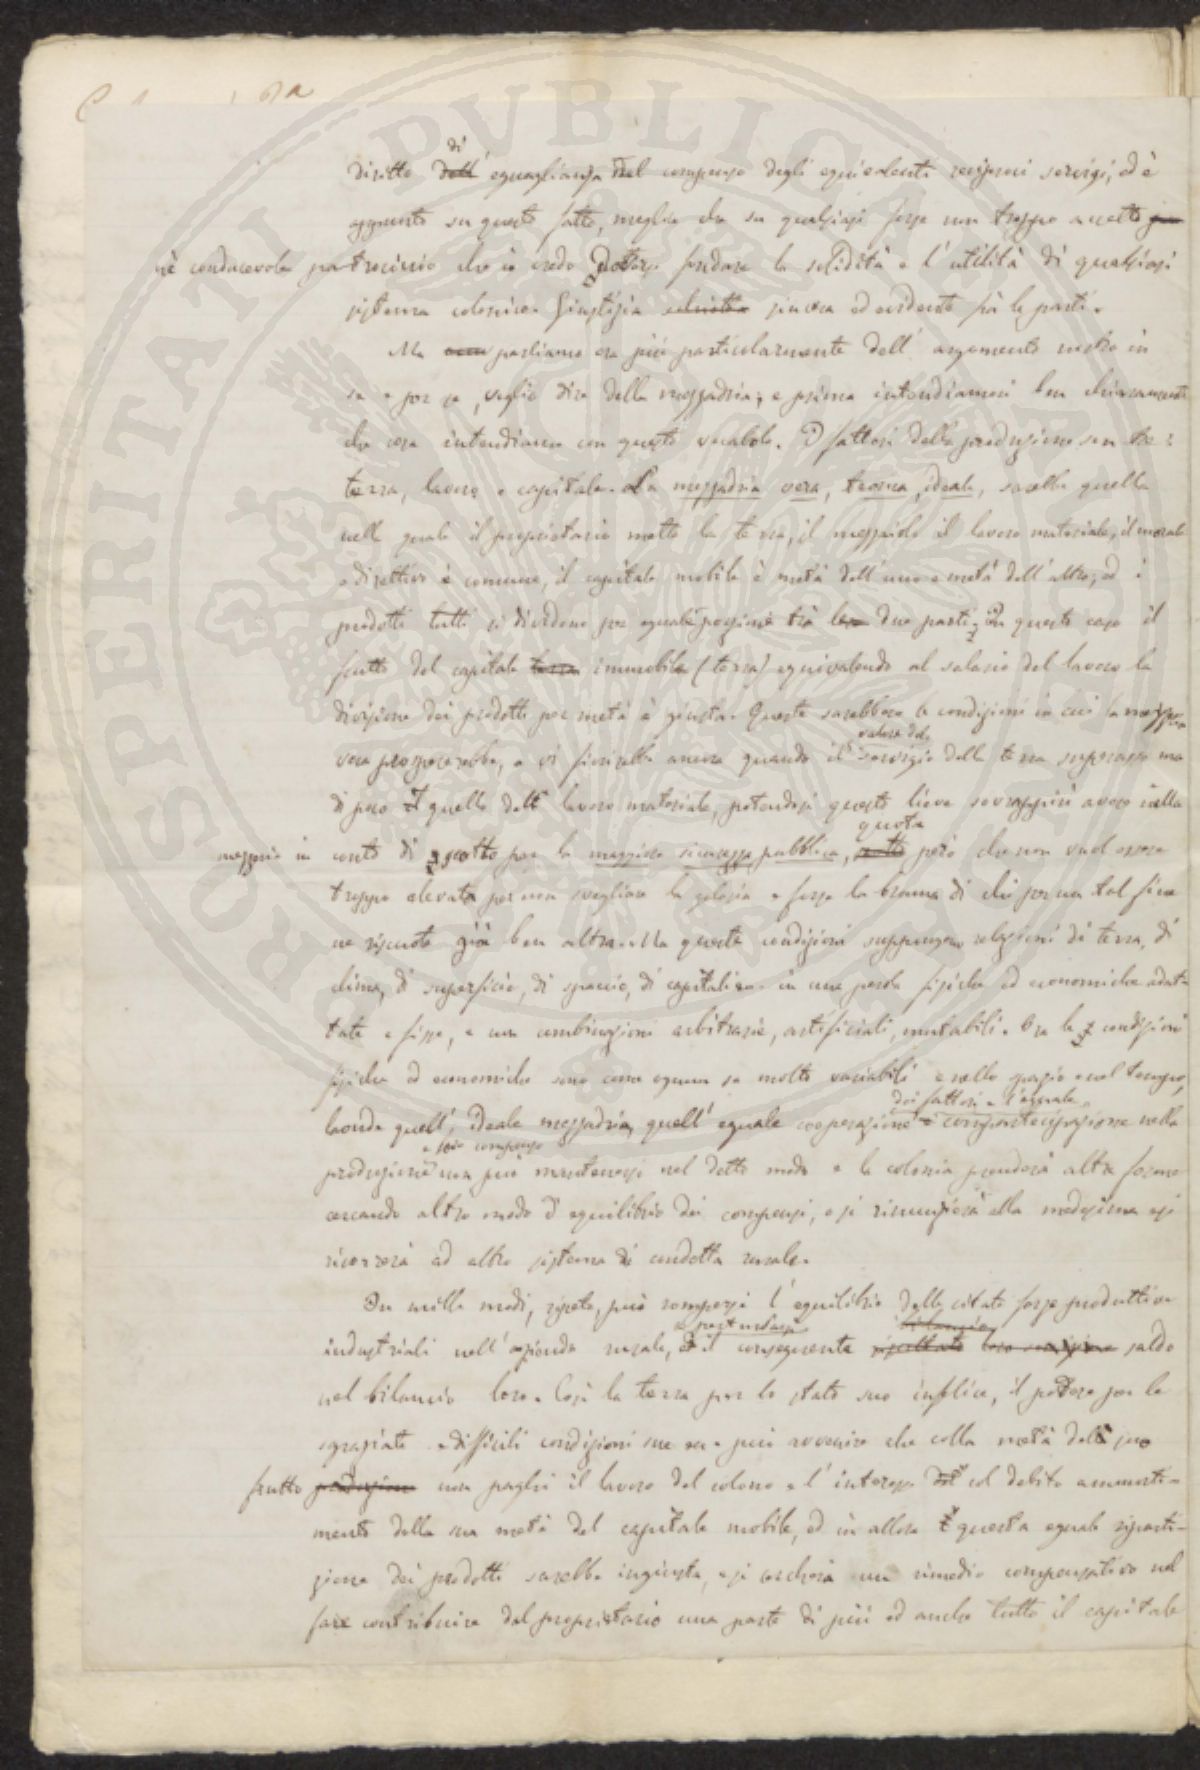 PROSPERITATI PUBLICAE AUGENDAE
di
diritto dell' eguaglianza del compenso degli equivalenti reciproci servigi, ed è
appunto su questo fatto, meglio che su qualsiasi forse non troppo accetto
nè conducevole patrocinio che io credo potersi fondare la solidità e l'utilità di qualsiasi
sistema colonico. Giustizia sincera ed evidente frà le parti.
Ma parliamo ora più particolarmente dell' argomento nostro in
se e per se, voglio dire della mezzadria; e prima intendiamoci ben chiaramente
che cosa intendiamo con questo vocabolo. I fattori della produzione son tre:
terra, lavoro e capitale. La mezzadria vera, teorica, ideale, sarebbe quella
nella quale il proprietario mette la terra, il mezzaiolo il lavoro materiale, il morale
e direttivo è comune, il capitale mobile è metà dell'uno e metà dell'altro, ed i
prodotti tutti si dividono per eguale porzione trà le due parti. In questo caso il
frutto del capitale terra immobile (terra) equivalendo al salario del lavoro la
divisione dei prodotti per metà è giusta. Queste sarebbero le condizioni in cui la mezzadria
valore del
vera prospererebbe, e vi fiorirebbe ancora quando il servigio della terra superasse ma
di poco quello dell lavoro materiale, potendosi questo lieve sovrappiù avere nella
quota
mezzeria in conto di per la maggiore sicurezza pubblica, però che non vuol essere
troppo elevata per non svegliare la gelosia e forse la brama di chi per un tal fine
ne riscuote già ben altra. Ma queste condizioni suppongono relazioni di terra, di
clima, di superficie, di spaccio, di capitali ec. in una parola fisiche ed economiche adat-
tate e fisse, e non combinazioni arbitrarie, artificiali, mutabili. Ora le condizioni
fisiche ed economiche sono come ognun sa molto variabili e nello spazio e nel tempo,
dei fattori e l'eguale
laonde quell' ideale mezzadria, quell' eguale cooperazione e compartecipazione nella
e suo compenso
produzione non può mantenersi nel detto modo e la colonia prenderà altre forme
cercando altro modo d'equilibrio dei compensi, o si rinunzierà alla medesima e si
ricorrerà ad altro sistema di condotta rurale.
In mille modi, ripeto, può rompersi l'equilibrio delle citate forze produttive
industriali nell'azienda rurale, il conseguente saldo
nel bilancio loro. Così la terra per lo stato suo infelice, il podere per le
sgraziate e difficili condizioni sue ec. e può avvenire che colla metà del suo
frutto produzione non paghi il lavoro del colono e l'interesse col debito ammorti-
mento della sua metà del capitale mobile, ed in allora questa eguale riparti-
zione dei prodotti sarebbe ingiusta, e si cercherà un rimedio compensativo nel
fare contribuire dal proprietario una parte di più ed anche tutto il capitale